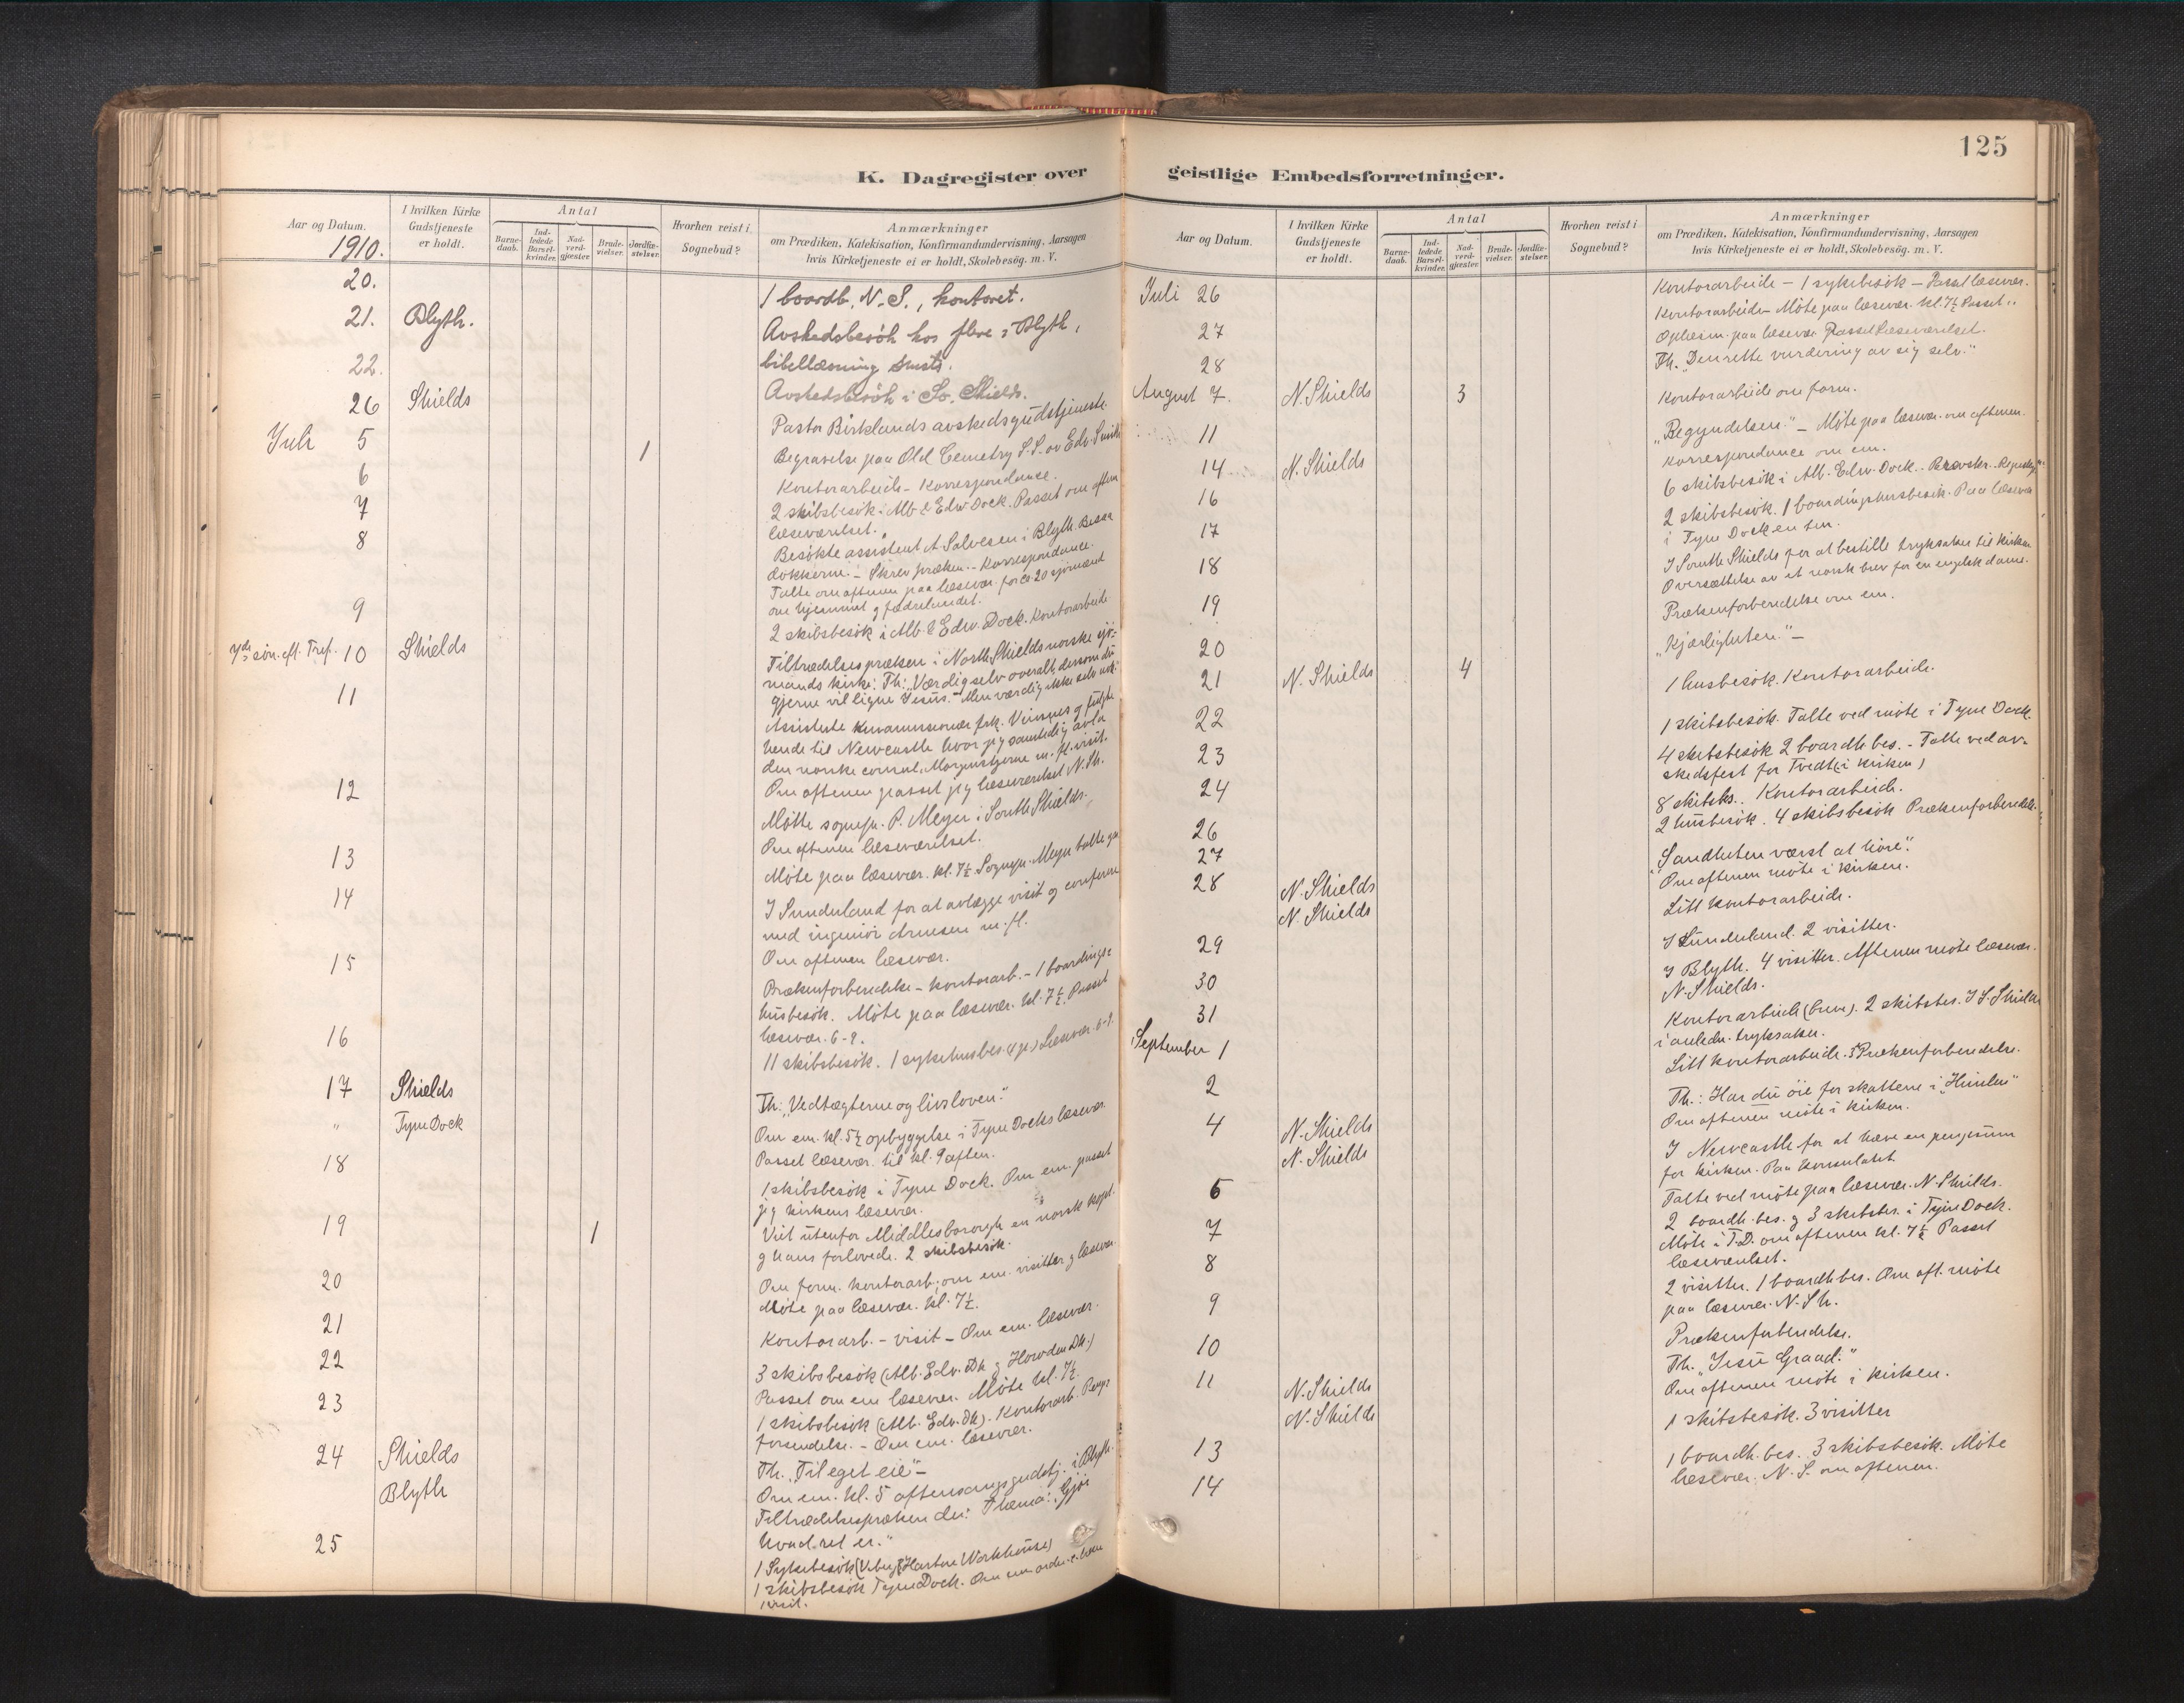 125
K. Dagregister over geistlige Embedsforretninger.
Aar og Datum.
1910.
I hvilken Kirke Gudstjeneste er holdt.
Antal
Barnedaab.
Indledede Barselkvinder.
Nadverdgjæster.
Brudevielser.
Jordfæstelser.
Hvorhen reist i Sognebud?
Anmærkninger
om Prædiken, Katekisation, Konfirmandundervisning, Aarsagen
hvis Kirketjeneste ei er holdt, Skolebesög. m. V.
20. 1 boardb. N. S., kontoret.
21. Blyth. Avskedsbesök hos flere i Blyth,
bibellæsning
22. Avskedsbesök i So. Shields.
26 Shields Pastor Birklands avskedsgudstjeneste.
Juli 5 1 Begravelse paa Old Cemetry S.S. av Edv. Smith
6 Kontorarbeide - Korrespondance.
7 2 skibsbesök i Alb. & Edw Dock. Passet om aften
læseværelset.
8 Besökte assistent A. Salvesen i Blyth. Besaa
dokkerne. - Skrev præken. - Korrespondance.
Talte om aftenen paa læsevær. for ca 20 sjömænd
om hjemmet og fædrelandet.
9 2 skibsbesök i Alb. & Edw. Dock. Kontorarbeide
7de sön. eft. Tref. 10 Shields Tiltrædelsespræken i North Shields norske sjö-
mands kirke: Th: "Vær dig selv overalt, dersom du
gjerne vil ligne Jesus. - Men vær dig ikke selv nok.
11 Assisterte frk. og fulgte
hende til Newcastle hvor jeg samtidig avla
den norske consul, Morgenstjerne m. fl. visit.
Om aftenen passet jeg læseværelset N. Sh.
12 Mötte sognepr. P. Meyer i South Shields.
Om aftenen læseværelset.
13 Möte paa læsevær. kl. 7½. Sognepr. Meyer talte
14 I Sunderland for at avlægge visit og conferere
med ingeniör Arnesen m. fl.
Om aftenen læsevær.
15 Prækenforberedelse - kontorarb. - 1 boardings-
husbesök. Möte paa læsevær. kl. 7½. Passet
læsevær. 6-9.
16 11 skibsbesök. 1 sykehusbes. Læsevær. 6-9.
17 Shields Th: "Vedtægterne og livsloven."
" Tyne Dock Om em. kl. 5½ opbyggelse i Tyne Docks læsevær.
Passet læsevær. til kl. 9 aften.
18 1 skibsbesök i Tyne Dock. Om em. passet
jeg kirkens læsevær.
19 1 Viet utenfor Middlesborough en norsk kapt.
og hans forlovede. 2 skibsbesök.
20 Om form. kontorarb.; om em. visitter og læsevær.
Möte paa læsevær. kl. 7½.
21 Kontorarb. - visit - Om em. læsevær.
22 3 skibsbesök (Alb. Edv. Dk. og Howden Dk.)
Passet om em læsevær. Möte kl. 7½.
23 1 skibsbesök (Alb. Edv. Dk). Kontorarb. Penge
forsendelse. - Om em. læsevær.
24 Shields Th. "Til eget eie" -
Blyth Om em. kl. 5 aftensangsgudstj. i Blyth.
Tiltrædelsespræken der. Thema: "Gjör
hvad ret er."
25 1 Sykebesök (Harton Workhouse)
1 skibsbesök Tyne Dock. Om em
visit.
Aar og Datum.
I hvilken Kirke Gudstjeneste er holdt.
Antal
Barnedaab.
Indledede Barselkvinder.
Nadverdgjæster.
Brudevielser.
Jordfæstelser.
Hvorhen reist i Sognebud?
Anmærkninger
om Prædiken, Katekisation, Konfirmandundervisning, Aarsagen
hvis Kirketjeneste ei er holdt, Skolebesög. m. V.
Juli 26 Kontorarbeide - 1 sykebesök - Passet læsevær.
27 Kontorarbeide - Möte paa læsevær. kl. 7½ Passet "
28 Oplæsn. paa læsevær. Passet læseværelset.
August 7. N. Shields 3 Th. "Den rette vurdering av sig selv."
11 Kontorarbeide om form.
14 N. Shields "Begyndelsen." - Möte paa læsevær. om aftenen.
16 Korrespondance om em.
17 6 skibsbesök i Alb. Edw. Dock.
18 2 skibsbesök. 1 boardingshusbesök. Paa læsevær
i Tyne Dock en tur.
19 I South Shields for at bestille tryksaker til kirken
Oversættelse av et norsk brev for en engelsk dame.
20 Prækenforberedelse om em.
21 N. Shields 4 "Kjærligheten." -
22 1 husbesök. Kontorarbeide.
23 1 skibsbesök. Talte ved möte i Tyne Dock.
24 4 skibsbesök 2 boardh. bes. - Talte ved av-
skedsfest for Tvedt (i kirken)
26 8 skibsbs. Kontorarbeide.
27 2 husbesök. 4 skibsbesök Prækenforberedelse.
28 N. Shields "Sandheten værst at höre".
N. Shields Om aftenen möte i kirken.
29 Litt kontorarbeide.
30 I Sunderland. 2 visitter.
31 I Blyth. 4 visitter. Aftenen möte læsevær.
N. Shields.
September 1 Kontorarbeide (breve). 2 skibsbes. I S. Shields
i anledn. tryksaker.
2 Litt kontorarbeide. Prækenforberedelse.
4 N. Shields Th.: Har du öie for skattene i "Himlen"
N. Shields Om aftenen möte i kirken.
6 I Newcastle for at hæve en pengesum
for kirken. Paa konsulatet
7 Talte ved möte paa læsevær. N. Shields.
8 2 boardh. bes. og 3 skibsbes. i Tyne Dock.
Möte i T.D. om aftenen kl. 7½ Passet
læseværelset.
9 2 visitter. 1 boardh. bes. Om aft. möte
paa læsevær. N. Sh.
10 Prækenforberedelse.
11 N. Shields Th. "Jesu Graad."
N. Shields Om aftenen möte i kirken.
13 1 skibsbesök. 3 visitter
14 1 boardh. bes. 3 skibsbesök. Möte
læsevær. N. S. om aftenen.